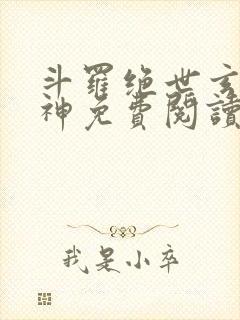 斗羅绝世玄
神免費閱讀
我是小卒